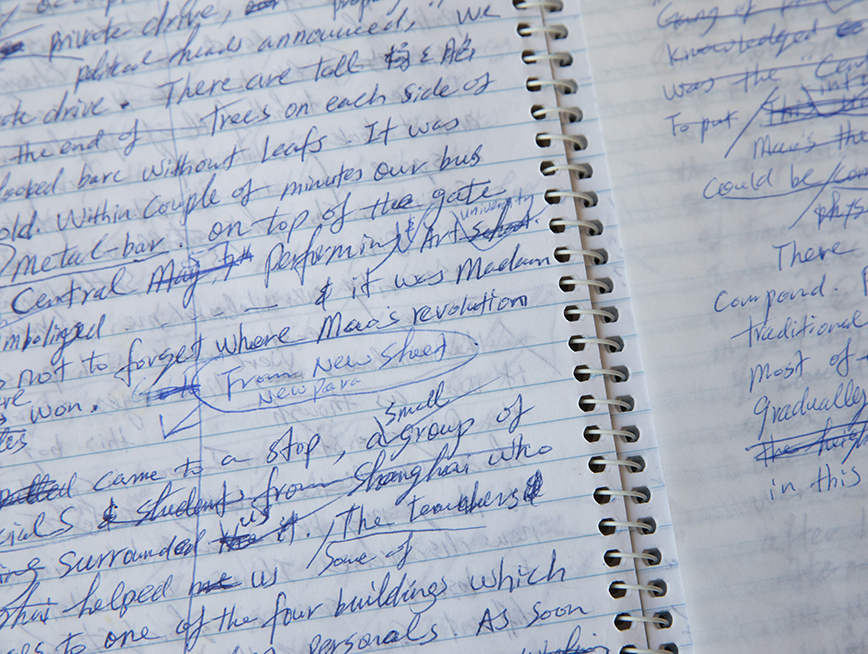 private drive,
political heads announced, "We
drive. There are tall
the end of trees on each side of
looked bare without leafs. It was
old. Within couple of minutes our bus
metal-bar. on top of the gate
university
Central Performing Art School.
& it was Madam
not to forget where Mao's revolution
won. From New Sheet.
New para
small
came to a stop, a group of
& students from Shanghai who
surrounded us. The teachers &
Some of
helped me us
to one of the four buildings which
personals. As soon
Knowledged
was the "Cent
To put This int
Mao's the
could be
phys
There
Compound.
traditional
most of
Gradually
The heigh
in this